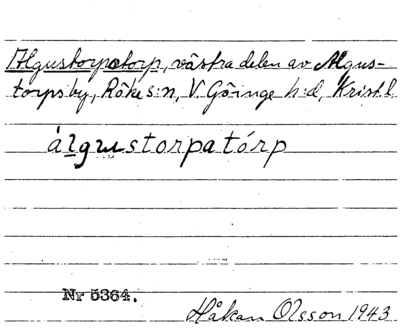 Algustorpatorp, västra delen av Algus-
torps by, Röke s:n, V. Göinge h:d, Krist. l.
álgustorpatórp
Nr 5364.
Håkan Olsson 1943